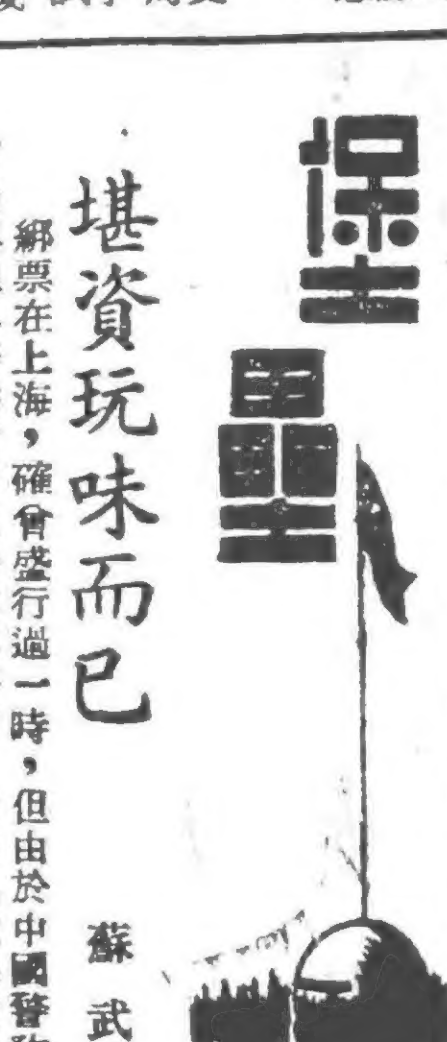 堡壘
堪資玩味而已
蘇武
綁票在上海，確曾盛行過一時，但由於中國警